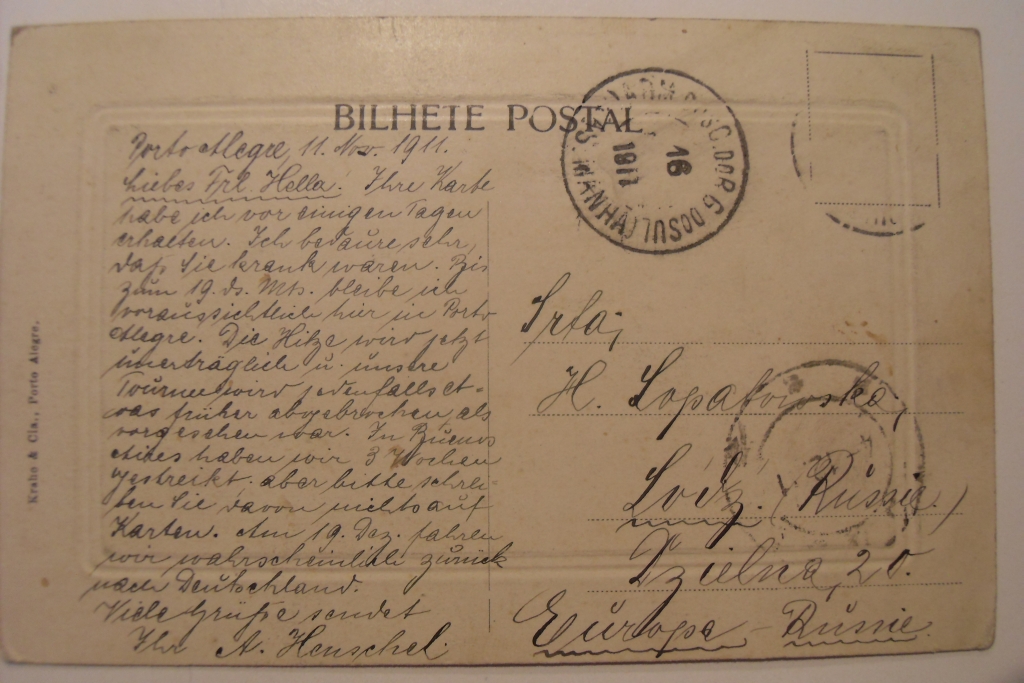 BILHETE POSTAL
Porto Alegre, 11. Nov. 1911.
Liebes Frl. Hella! Ihre Karte
habe ich vor einigen Tagen
erhalten. Ich bedaure sehr,
daß Sie krank waren. Bis
zum 19. ds. Mts. bleibe ich
voraussichtlich hier in Porto
Alegre. Die Hitze wird jetzt
unerträglich u. unsere
Tournee wird jedenfalls et-
was früher abgebrochen, als
vorgesehen war. In Buenos
Aires haben wir 3 Wochen
gestreikt. aber bitte schrei-
ben Sie davon nichts auf
Karten. Am 19. Dez. fahren
wir wahrscheinlich zurück
nach Deutschland.
Viele Grüße sendet
Ihr A. Henschel.
Krahe & Cia., Porto Alegre.
16
MANHÃ
DO SUL
Srta,
H. Lopatowska,
Lódz. (Russie.)
Dzielna, 20.
Europa - Russie.